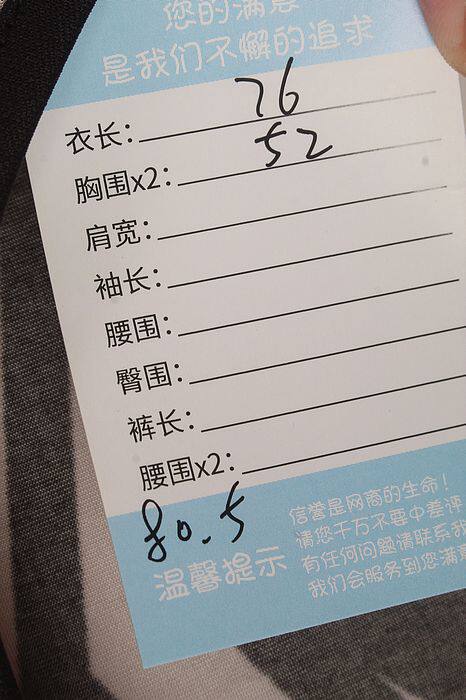 您的满意
是我们不懈的追求
衣长: 76
胸围x2: 52
肩宽:
袖长:
腰围:
臀围:
裤长:
腰围x2:
80.5
温馨提示
信誉是网商的生命!
请您千万不要中差评
有任何问题请联系我
我们会服务到您满意